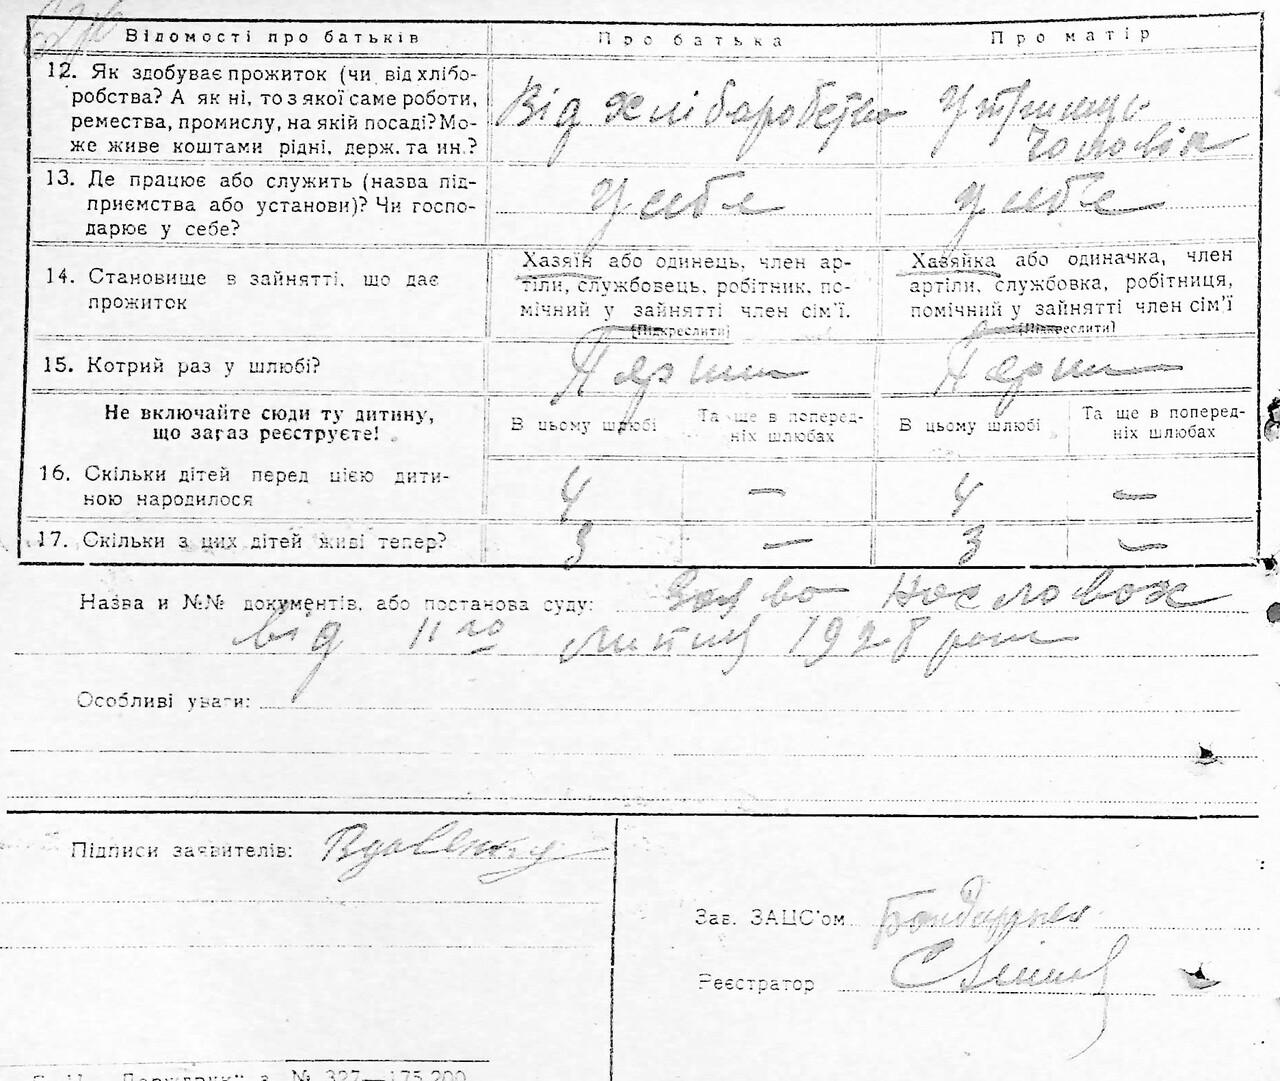 Відомості про батьків
Про батька
Про матір
12. Як здобуває прожиток (чи від хлібо-
робства? А як ні, то з якої саме роботи,
ремества, промислу, на якій посаді? Мо-
же живе коштами рідні, держ. та ин.?
Від хліборобства
Утримує
чоловік
13. Де працює або служить (назва під-
приємства або установи)? Чи госпо-
дарює у себе?
У себе
У себе
14. Становище в зайнятті, що дає
прожиток
Хазяїн або одинець, член ар-
тіли, службовець, робітник, по-
мічний у зайнятті член сім'ї.
(Підкреслити)
Хазяйка або одиначка, член
артіли, службовка, робітниця,
помічний у зайнятті член сім'ї
(Підкреслити)
15. Котрий раз у шлюбі?
Перши
Перши
Не включайте сюди ту дитину,
що загаз реєструєте!
В цьому шлюбі
Та ще в поперед-
ніх шлюбах
В цьому шлюбі
Та ще в поперед-
ніх шлюбах
16. Скільки дітей перед цією дити-
ною народилося
4 — 4 —
17. Скільки з цих дітей живі тепер?
3 — 3 —
Назва и №№ документів, або постанова суду: Заява
від 11го липня 1928 року
Особливі уваги:
Підписи заявителів: Вдовенко
Зав. ЗАЦС'ом Бондаренко
Реєстратор
№ 327—175.200